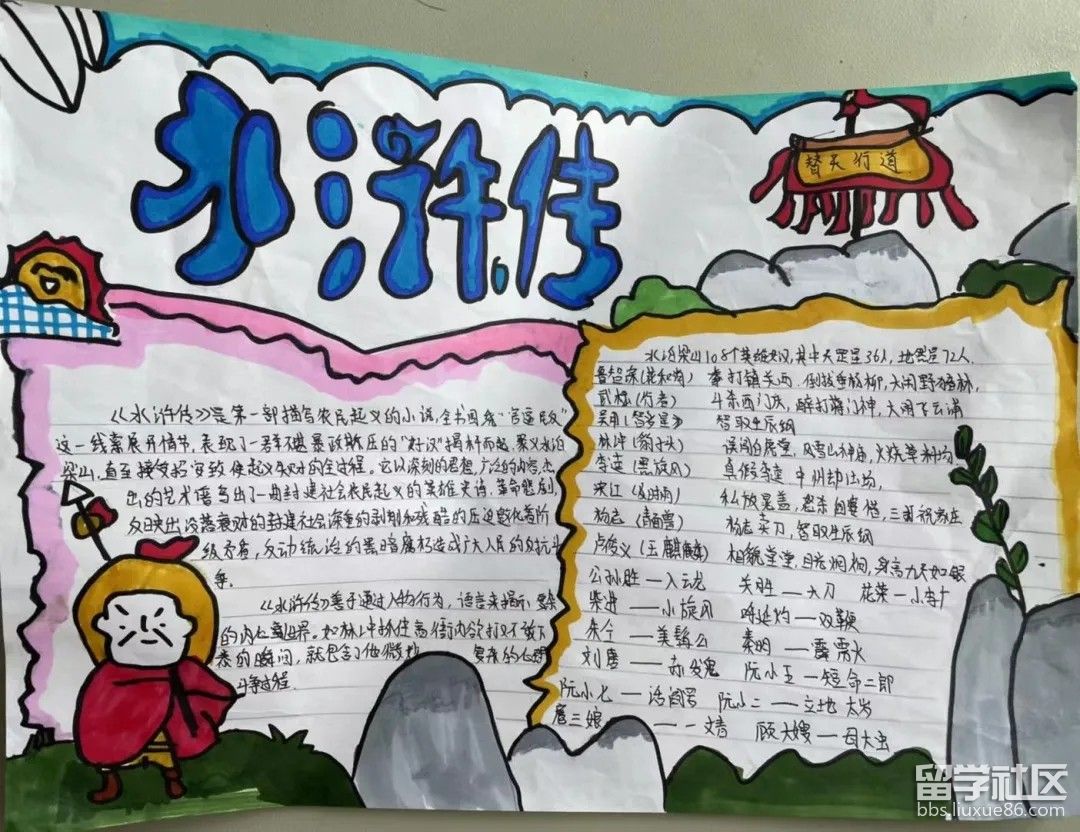 水浒传
替天行道
《水浒传》是第一部描写农民起义的小说,全书围绕"官逼民反"
这一线索展开情节,表现了一群不堪暴政欺压的"好汉"揭竿而起,聚义水泊
梁山,直至接受招安致使起义失败的全过程。它以深刻的思想,广泛的内容,杰
出的艺术谱写出了一曲封建社会农民起义的英雄史诗,革命悲剧,
反映出没落衰财的封建社会深重的剥削和残酷的压迫
级矛盾,反动统治的黑暗腐朽造成广大人民的对抗斗
争。
《水浒传》善于通过人物行为,语言来揭示复杂
的内心世界。如林冲抓住高衙内欲打又不敢下
的瞬间,就包含了他微妙、复杂的心理
斗争过程
水泊梁山108个英雄好汉,其中天罡星36人,地煞星72人.
鲁智深(花和尚) 拳打镇关西,倒拔垂杨柳,大闹野猪林,
武松(行者) 斗杀西门庆,醉打蒋门神,大闹飞云浦
吴用(智多星) 智取生辰纲
林冲(豹子头) 误闯白虎堂,风雪山神庙,火烧草料场
李逵(黑旋风) 真假李逵 中州劫法场,
宋江(及时雨) 私放晁盖,怒杀阎婆惜,三打祝家庄
杨志(青面兽) 杨志卖刀,智取生辰纲
卢俊义(玉麒麟) 相貌堂堂,目炯炯,身高九尺如银
公孙胜—入云龙 关胜—大刀 花荣—小李广
柴进—小旋风 呼延灼—双鞭
朱仝—美髯公 秦明—霹雳火
刘唐—赤发鬼 阮小五—短命二郎
阮小七—活阎罗 阮小二—立地太岁
扈三娘—一丈青 顾大嫂—母大虫
留学社区
bbs.liuxue86.com